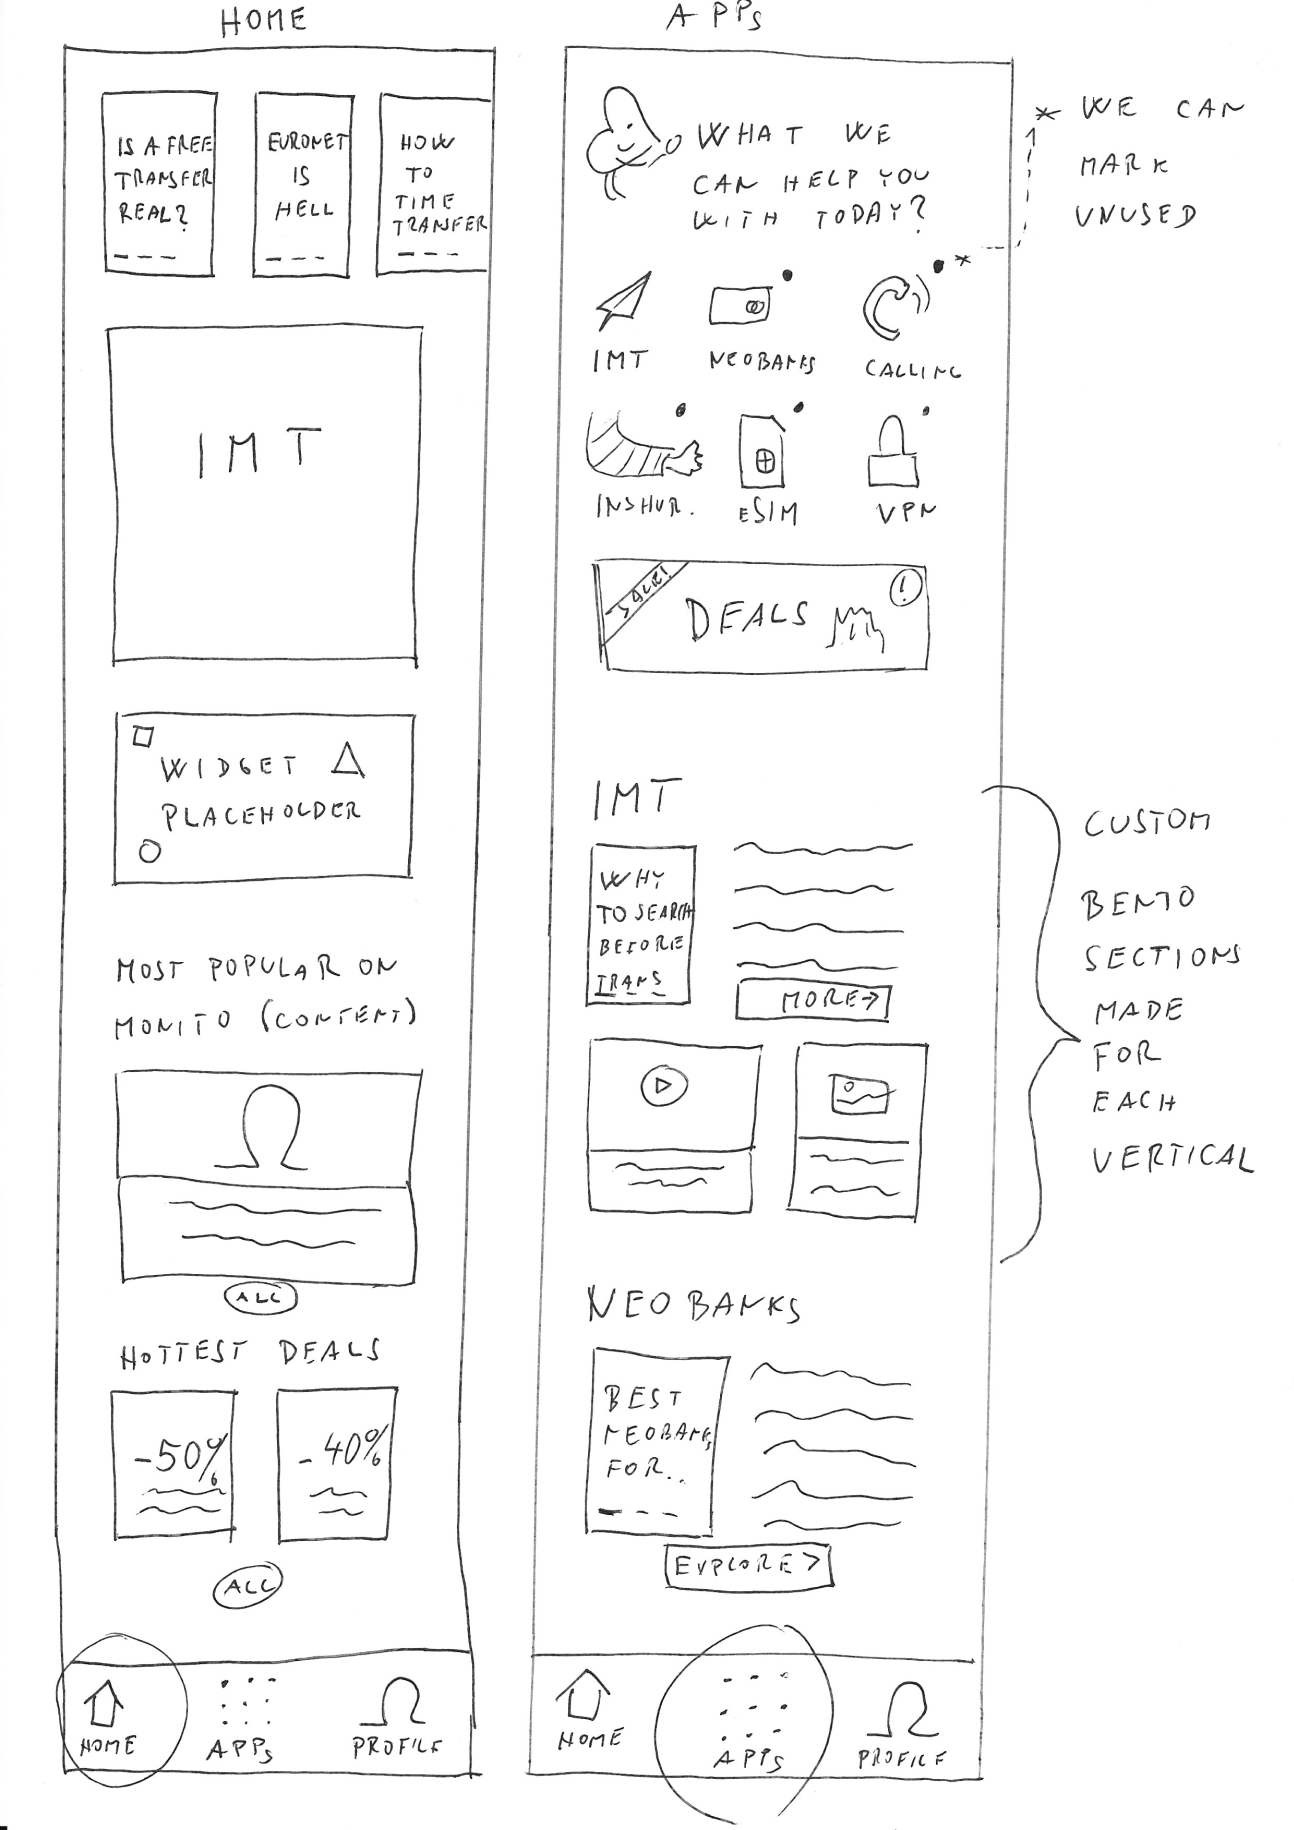 HOME
IS A FREE
TRANSFER
REAL?
EURONET
IS
HELL
HOW
TO
TIME
TRANSFER
IMT
WIDGET
PLACEHOLDER
MOST POPULAR ON
MONITO (CONTENT)
ALL
HOTTEST DEALS
-50%
-40%
ALL
HOME
APPs
PROFILE
APPs
WHAT WE
CAN HELP YOU
WITH TODAY?
* WE CAN
MARK
UNUSED
*
IMT
NEOBANKS
CALLING
INSHUR.
eSIM
VPN
DEALS
!
IMT
WHY
TO SEARCH
BEFORE
TRANS
MORE→
CUSTOM
BENTO
SECTIONS
MADE
FOR
EACH
VERTICAL
NEOBANKS
BEST
NEOBANKS
FOR..
EXPLORE >
HOME
APPs
PROFILE